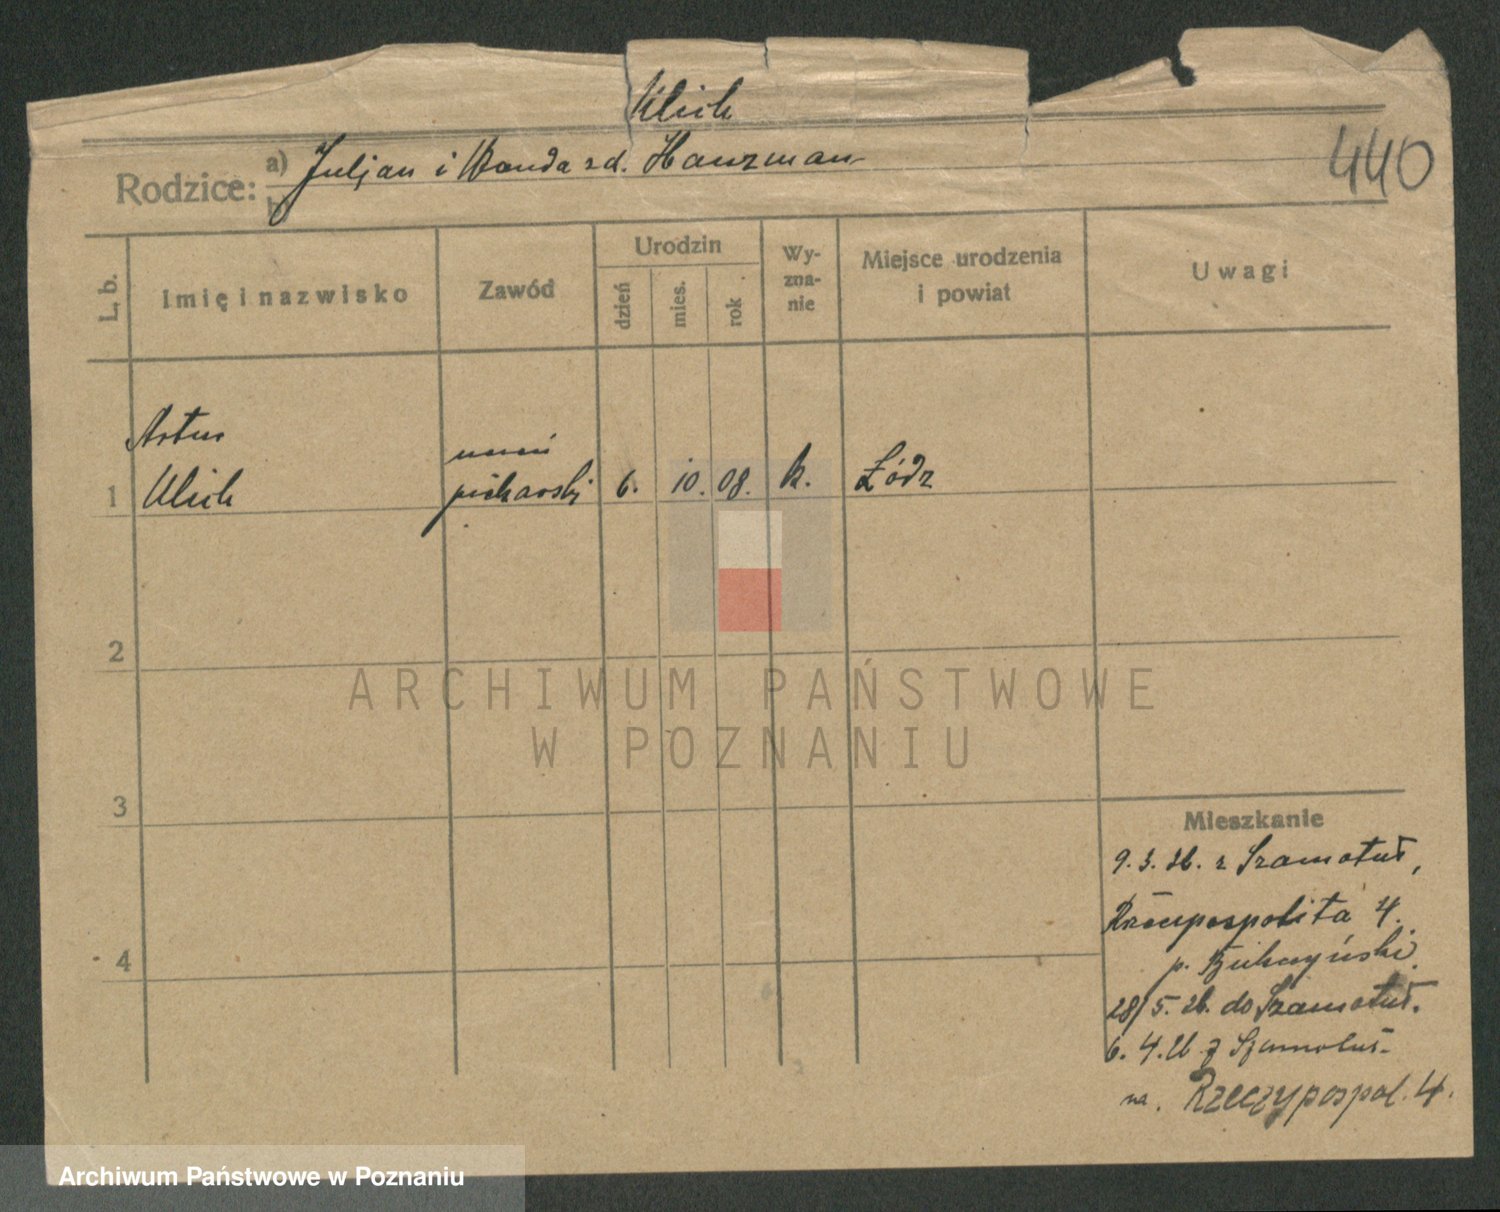 Ulich
440
Rodzice: a) Juljan i Wanda zd. Hauzman
b)
L. b.
Imię i nazwisko
Zawód
Urodzin
dzień
mies.
rok
Wy-
zna-
nie
Miejsce urodzenia
i powiat
Uwagi
Artur
uczeń
1 Ulich piekarski 6. 10. 08. k. Łódz
2
3
4
Mieszkanie
9.3.26. z Szamotuł,
Rzeczpospolita 4.
p.
28/5. 26. do Szamotuł.
6. 4. 26 z Szamotuł
na. Rzeczypospol. 4.
ARCHIWUM PAŃSTWOWE
W POZNANIU
Archiwum Państwowe w Poznaniu